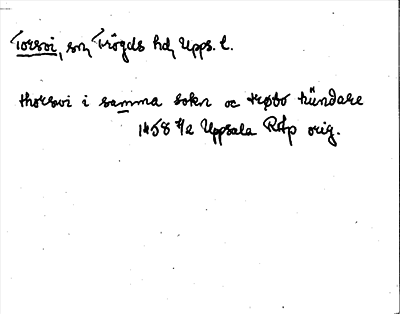 Torsvi, sn, Trögds hd, Upps. l.
thorswi i samma sokn oc trøbo hündare
1458 7/2 Uppsala RAp orig.